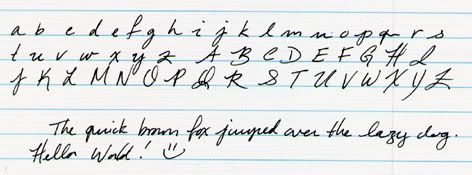 a b c d e f g h i j k l m n o p q r s
t u v w x y z A B C D E F G H I
J K L M N O P Q R S T U V W X Y Z
The quick brown fox jumped over the lazy dog.
Hello World! :)